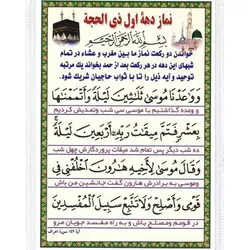 نماز دههٔ اول ذی الحجة
بسم الله الرحمن الرحیم
خواندن دو رکعت نماز ما بین مغرب و عشاء در تمام
شبهای این دهه در هر رکعت بعد از حمد بخواند یک مرتبه
توحید و آیه ذیل را تا با ثواب حاجیان شریک شود.
وَوَاعَدْنَا مُوسَىٰ ثَلَاثِينَ لَيْلَةً وَأَتْمَمْنَاهَا
و وعده گذاشتیم با موسی سی شب وتمدیش کردیم
بِعَشْرٍ فَتَمَّ مِيقَاتُ رَبِّهِ أَرْبَعِينَ لَيْلَةً
ده شب دیگر پس تمام شد میقات پروردگارش چهل شب
وَقَالَ مُوسَىٰ لِأَخِيهِ هَارُونَ اخْلُفْنِي فِي
وموسی به برادرش هارون گفت جانشین من باش
قَوْمِي وَأَصْلِحْ وَلَا تَتَّبِعْ سَبِيلَ الْمُفْسِدِينَ
در قومم ومصلح باش و به راه مفسد جویان مرو
آیه ۱۴۲ سورهٔ اعراف